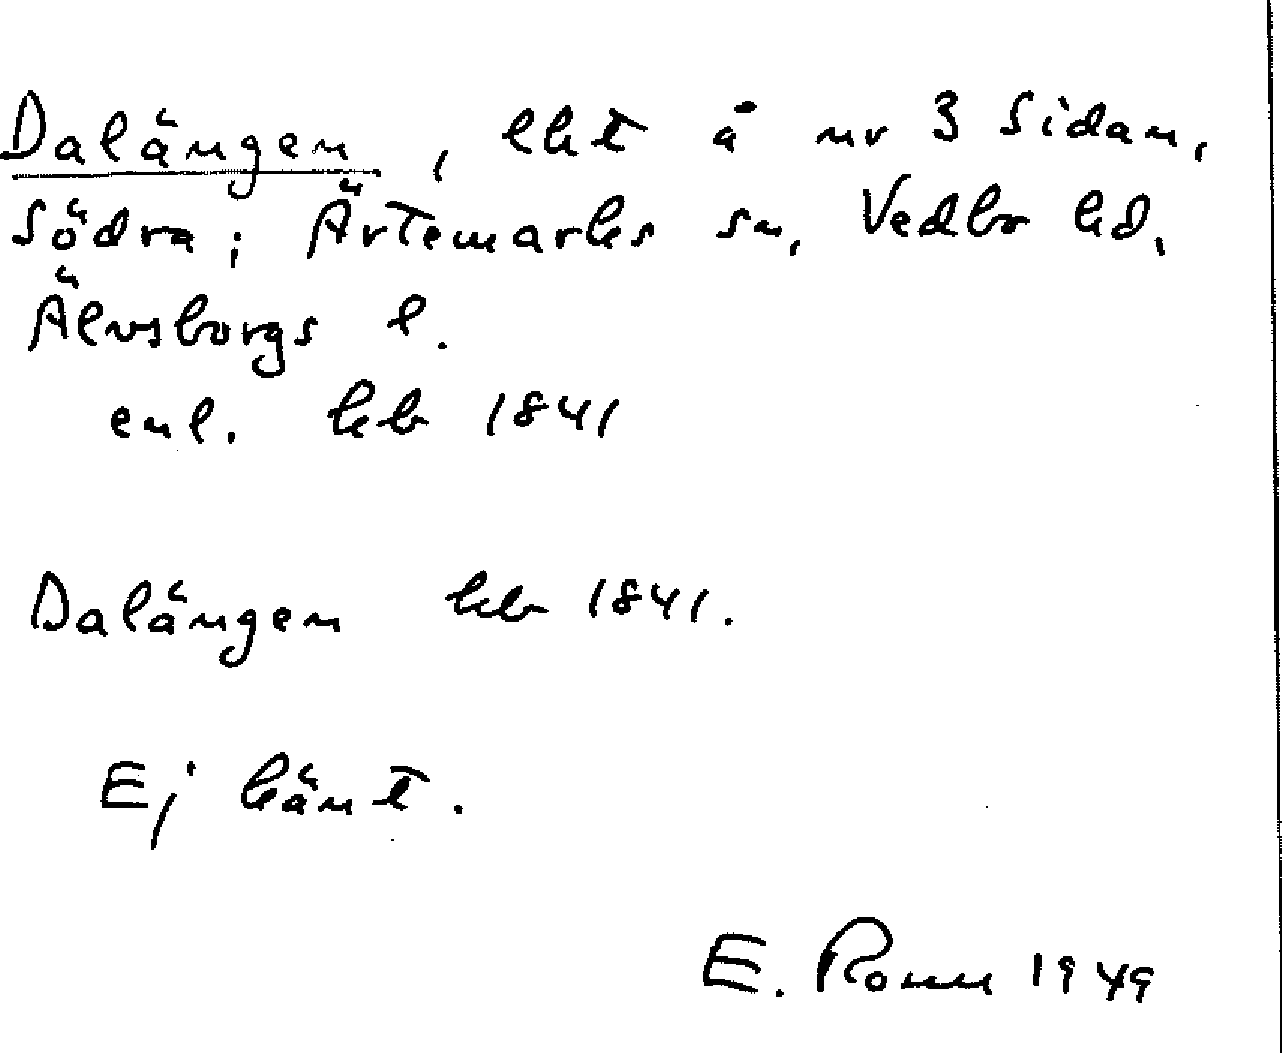 Dalängen, lht å nr 3 Sidan,
Södra; Ärtemarks sn, Vedbo hd,
Älvsborgs l.
enl. kb 1841
Dalängen kb 1841.
Ej känt.
E. 1949